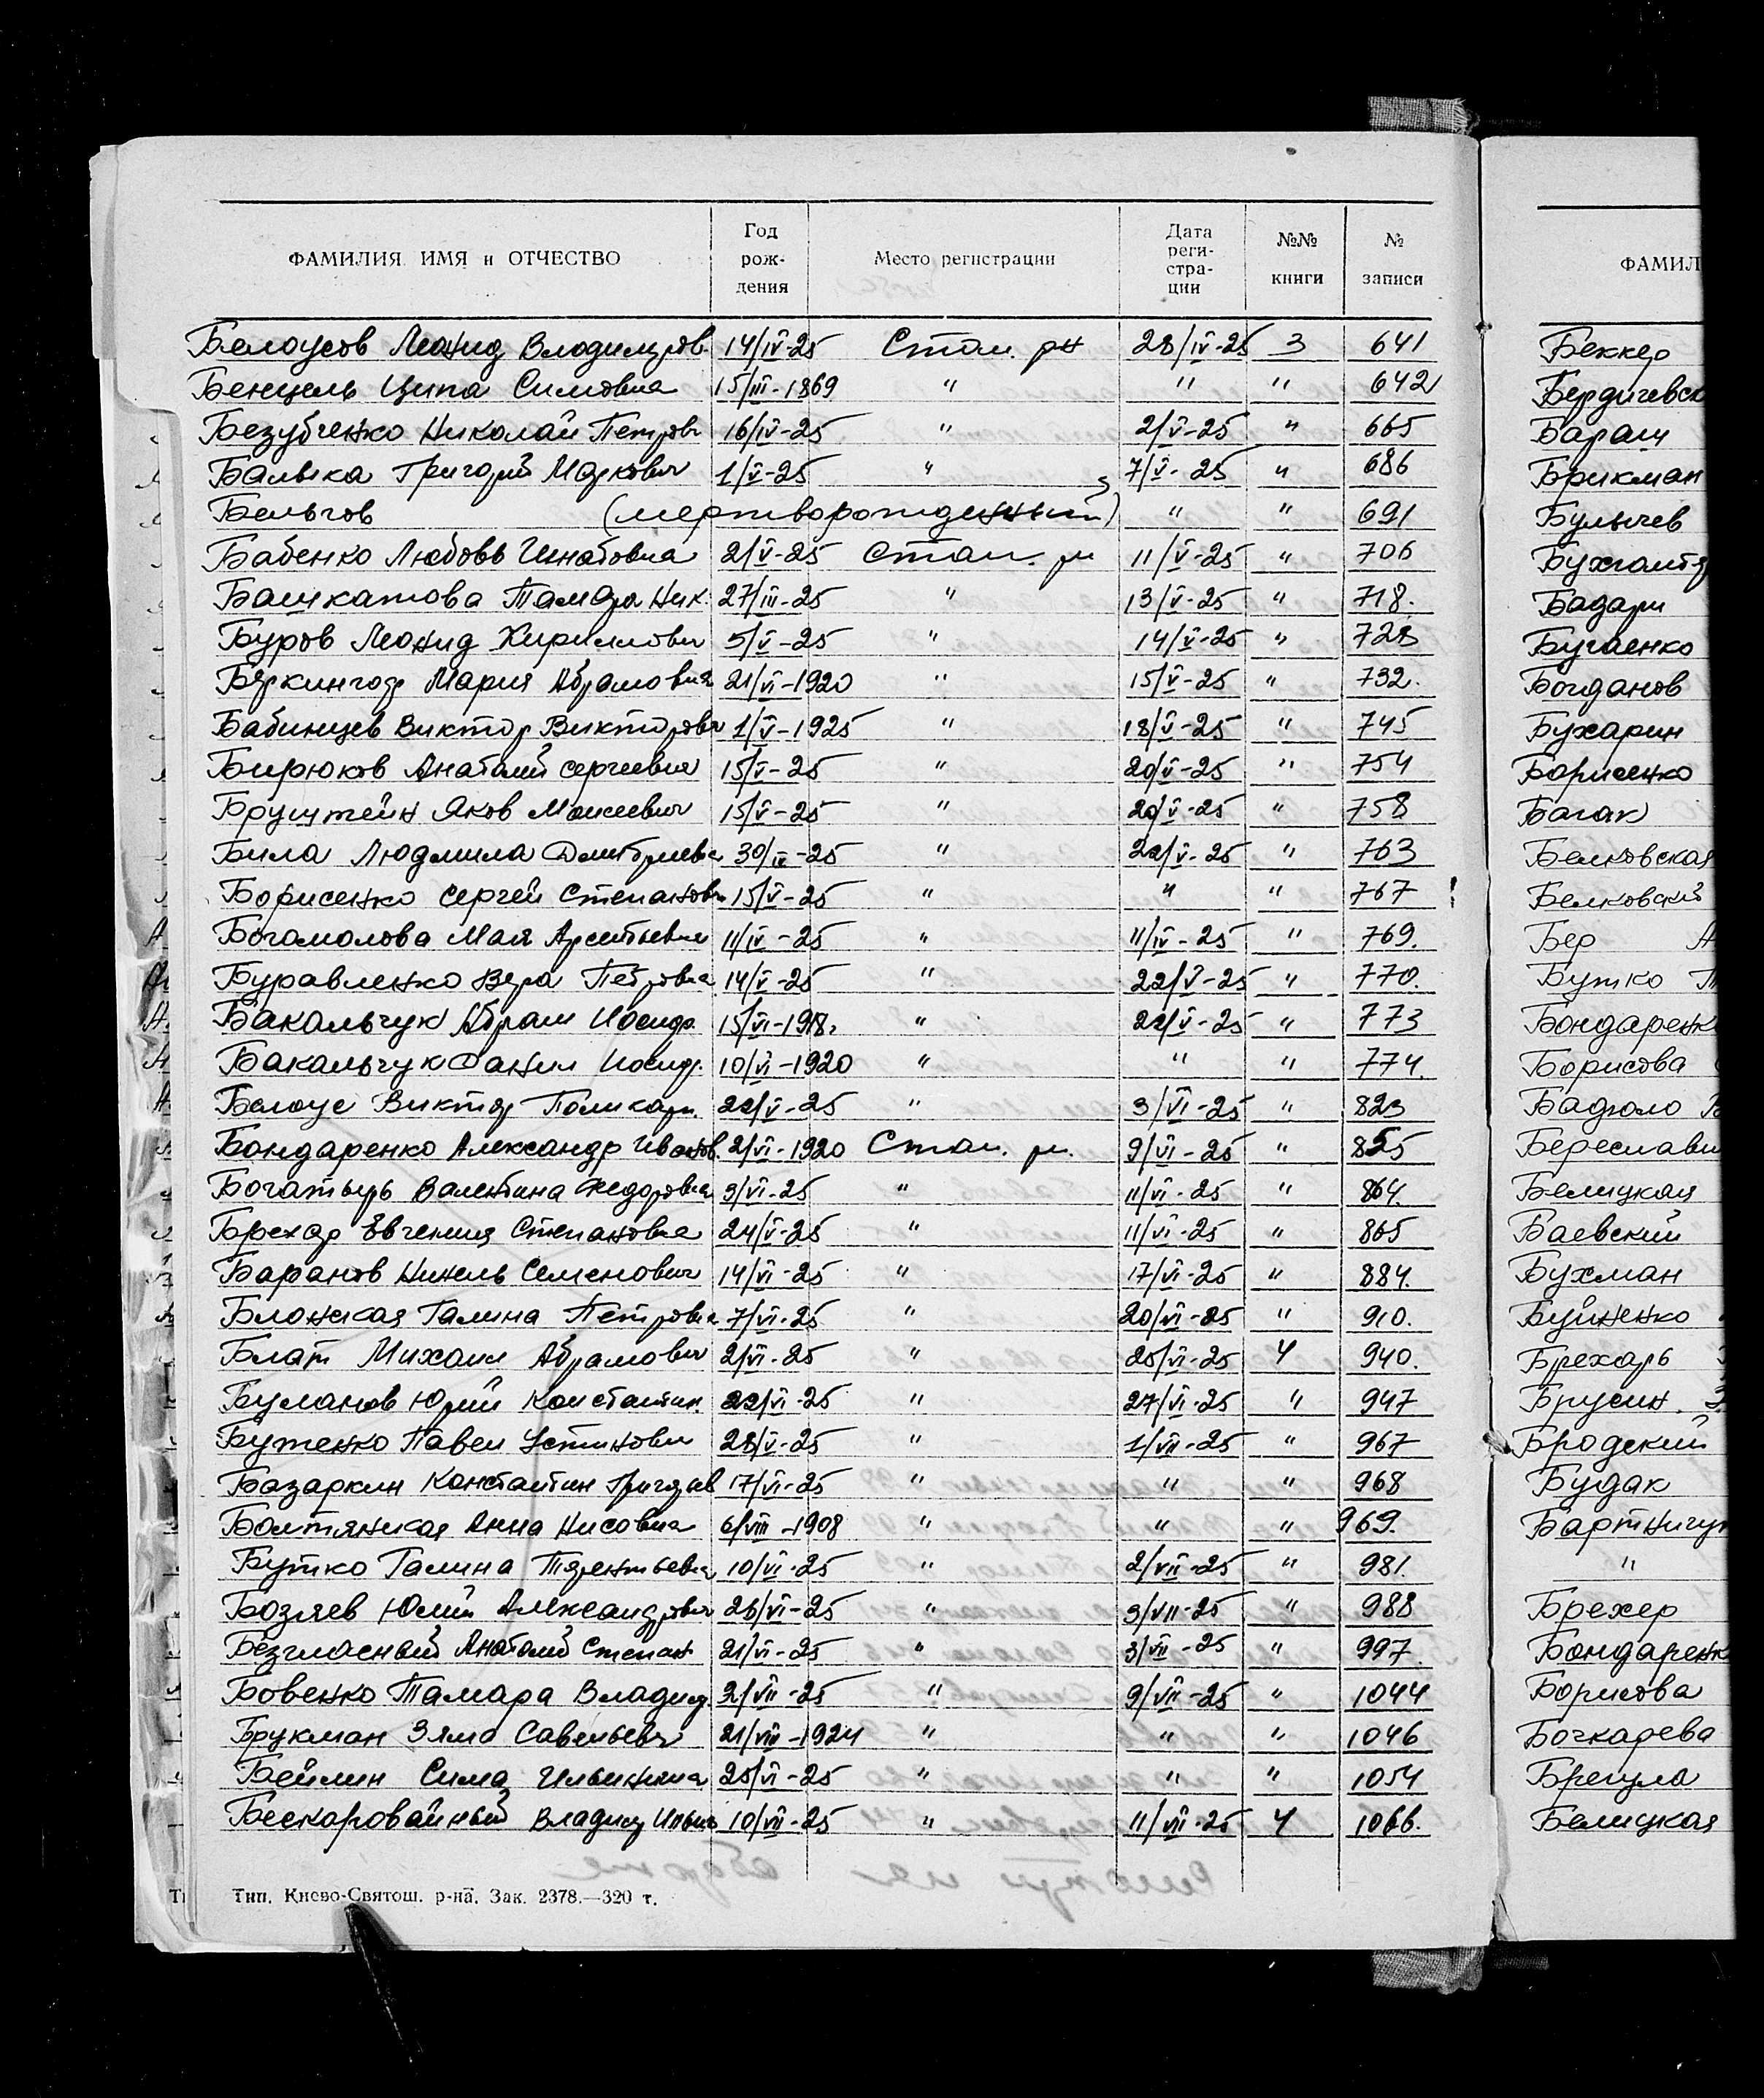 ФАМИЛИЯ ИМЯ и ОТЧЕСТВО Год рождения Место регистрации Дата регистрации №№ книги № записи
Белоусов Леонид Владимиров. 14/IV-25 Стал. рн 28/IV-25 3 641
Бенцель Ципа Симовна 15/III-1869 " " " 642
Безубченко Николай Петров 16/IV-25 " 2/V-25 " 665
Балыка Григорий Маркович 1/V-25 " 7/V-25 " 686
Бельчов (мертворожденный) " " 691
Бабенко Любовь Игнатовна 2/V-25 Стал. рн 11/V-25 " 706
Башкатова Тамара Ник. 27/III-25 " 13/V-25 " 718.
Буров Леонид Кириллович 5/V-25 " 14/V-25 " 728
Мария Абрамовна 21/VI-1920 " 15/V-25 " 732.
Бабинцев Виктор Викторович 1/V-1925 " 18/V-25 " 745
Бирюков Анатолий Сергеевич 15/V-25 " 20/V-25 " 754
Бруштейн Яков Моисеевич 15/V-25 " 20/V-25 " 758
Била Людмила Дмитриевна 30/IV-25 " 22/V-25 " 763
Борисенко Сергей Степанович 15/V-25 " " " 767 !
Богомолова Мая Арсентьевна 11/IV-25 " 11/IV-25 " 769.
Буравленко Вера Петровна 14/V-25 " 22/V-25 " 770.
Бакальчук Абрам Иосиф. 15/VI-1918. " 22/V-25 " 773
Бакальчук Данил Иосиф. 10/VI-1920 " " " 774.
Белоус Виктор Поликарп. 22/V-25 " 3/VI-25 " 823
Бондаренко Александр Иванов. 2/VI-1920 Стал. рн. 9/VI-25 " 855
Богатырь Валентина Федоровна 3/VI-25 " 11/VI-25 " 864.
Брехар Евгения Степановна 24/V-25 " 11/VI-25 " 865
Баранов Нинель Семенович 14/VI-25 " 17/VI-25 " 884.
Блонская Галина Петровна 7/VI-25 " 20/VI-25 " 910.
Блат Михаил Абрамович 2/VI-25 " 25/VI-25 4 940.
Буланов Юрий Константин. 22/VI-25 " 27/VI-25 " 947
Бутенко Павел Устинович 28/V-25 " 1/VII-25 " 967
Базаркин Константин Григорьев 17/VI-25 " " " 968
Болтянская Анна Нисовна 6/VIII-1908 " " " 969.
Бутко Галина Терентьевна 10/VI-25 " 2/VII-25 " 981.
Бозяев Юлий Александрович 26/VI-25 " 3/VII-25 " 988
Безгласный Анатолий Степан 21/VI-25 " 3/VII-25 " 997.
Бовенко Тамара Владим. 2/VII-25 " 9/VII-25 " 1044
Брукман Зяма Савельевич 21/VIII-1924 " " " 1046
Бейлин Сима Ильинична 25/VI-25 " " " 1054
Бескаровайный Владим Ильич 10/VII-25 " 11/VII-25 4 1066.
Тип. Киево-Святош. р-на. Зак. 2378.—320 т.
ФАМИЛ
Беккер
Бердичевск
Бараш
Брикман
Булычев
Бадари
Бугаенко
Богданов
Бухарин
Борисенко
Багак
Белковская
Белковский
Бер А
Бутко Т
Бондаренк
Борисова
Бадюло В
Береслави
Белицкая
Баевский
Бухман
Буйненко
Брехарь
Брусин. З
Бродский
Будак
Бартничук
"
Брехер
Бондаренк
Борисова
Бочкарева
Брегула
Белицкая